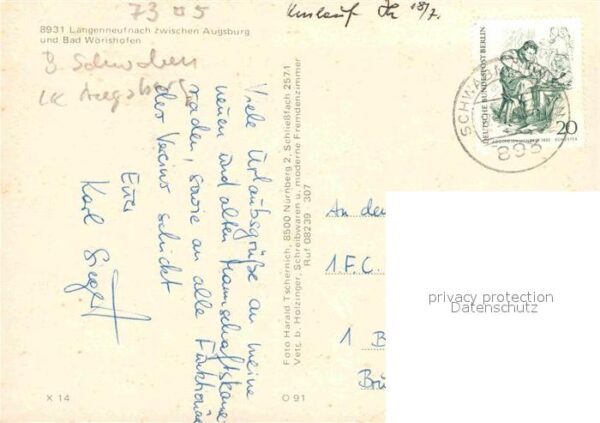 73 05
Umlauf
8931 Langenneufnach zwischen Augsburg
und Bad Wörishofen
B Schwaben
LK Augsburg
DEUTSCHE BUNDESPOST BERLIN
20
SCHWABMÜNCHEN
893
Viele Urlaubsgrüße an meine
neuen und alten Mannschaftskame-
raden, sowie an alle Funktionäre
des Vereins schickt
Euer
Karl Siegert
Foto Harald Tschernich, 8500 Nürnberg 2, Schließfach 2571
Vetr. b. Holzinger, Schreibwaren u. moderne Fremdenzimmer
Ruf 08239 - 307
An den
1. F.C.
1 B
Brü
privacy protection
Datenschutz
X 14
O 91